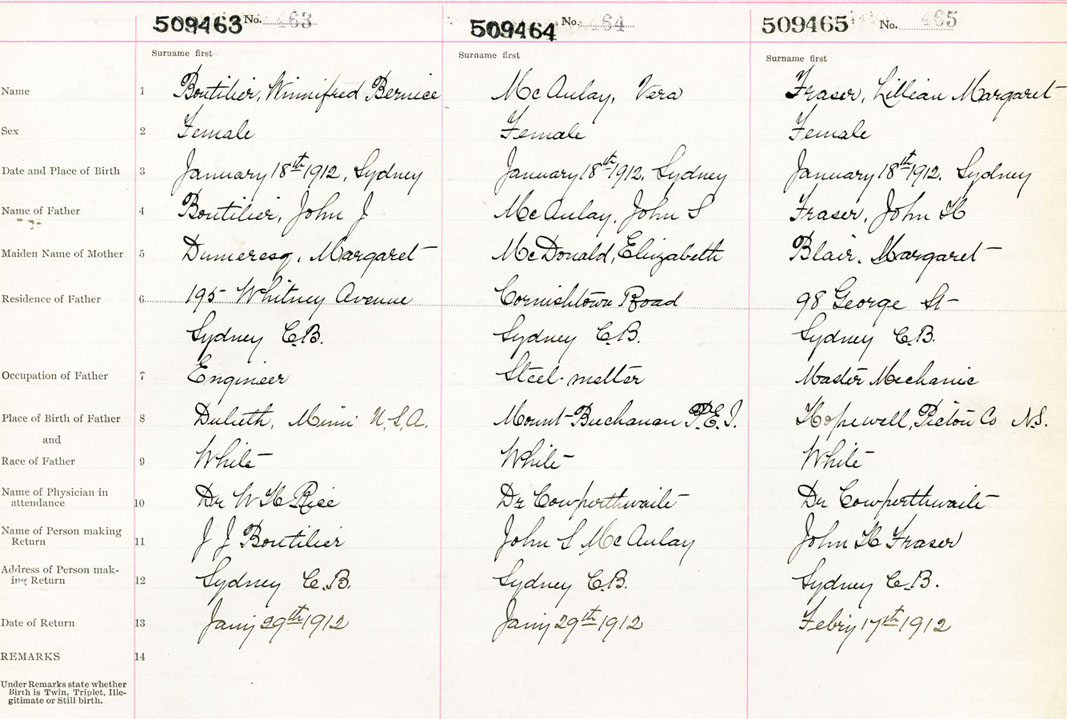 509463 No. 463 509464 No. 464 509465 No. 465
Surname first Surname first Surname first
Name 1 Boutilier, Winnifred Bernice McAulay, Vera Fraser, Lillian Margaret
Sex 2 Female Female Female
Date and Place of Birth 3 January 18th 1912, Sydney January 18th 1912, Sydney January 18th 1912, Sydney
Name of Father 4 Boutilier, John J McAulay, John S Fraser, John H
Maiden Name of Mother 5 Dumeresq, Margaret McDonald, Elizabeth Blair, Margaret
Residence of Father 6 195 Whitney Avenue Cornishtown Road 98 George St
Sydney C.B. Sydney C.B. Sydney C.B.
Occupation of Father 7 Engineer Steel-melter Master Mechanic
Place of Birth of Father 8 Duluth, Minn U.S.A. Mount Buchanan P.E.I. Hopewell, Pictou Co N.S.
and
Race of Father 9 White White White
Name of Physician in
attendance 10 Dr W H Rice Dr Cowperthwaite Dr Cowperthwaite
Name of Person making
Return 11 J J Boutilier John S McAulay John H Fraser
Address of Person mak-
ing Return 12 Sydney C.B. Sydney C.B. Sydney C.B.
Date of Return 13 Jany 29th 1912 Jany 29th 1912 Febry 17th 1912
REMARKS 14
Under Remarks state whether
Birth is Twin, Triplet, Ille-
gitimate or Still birth.